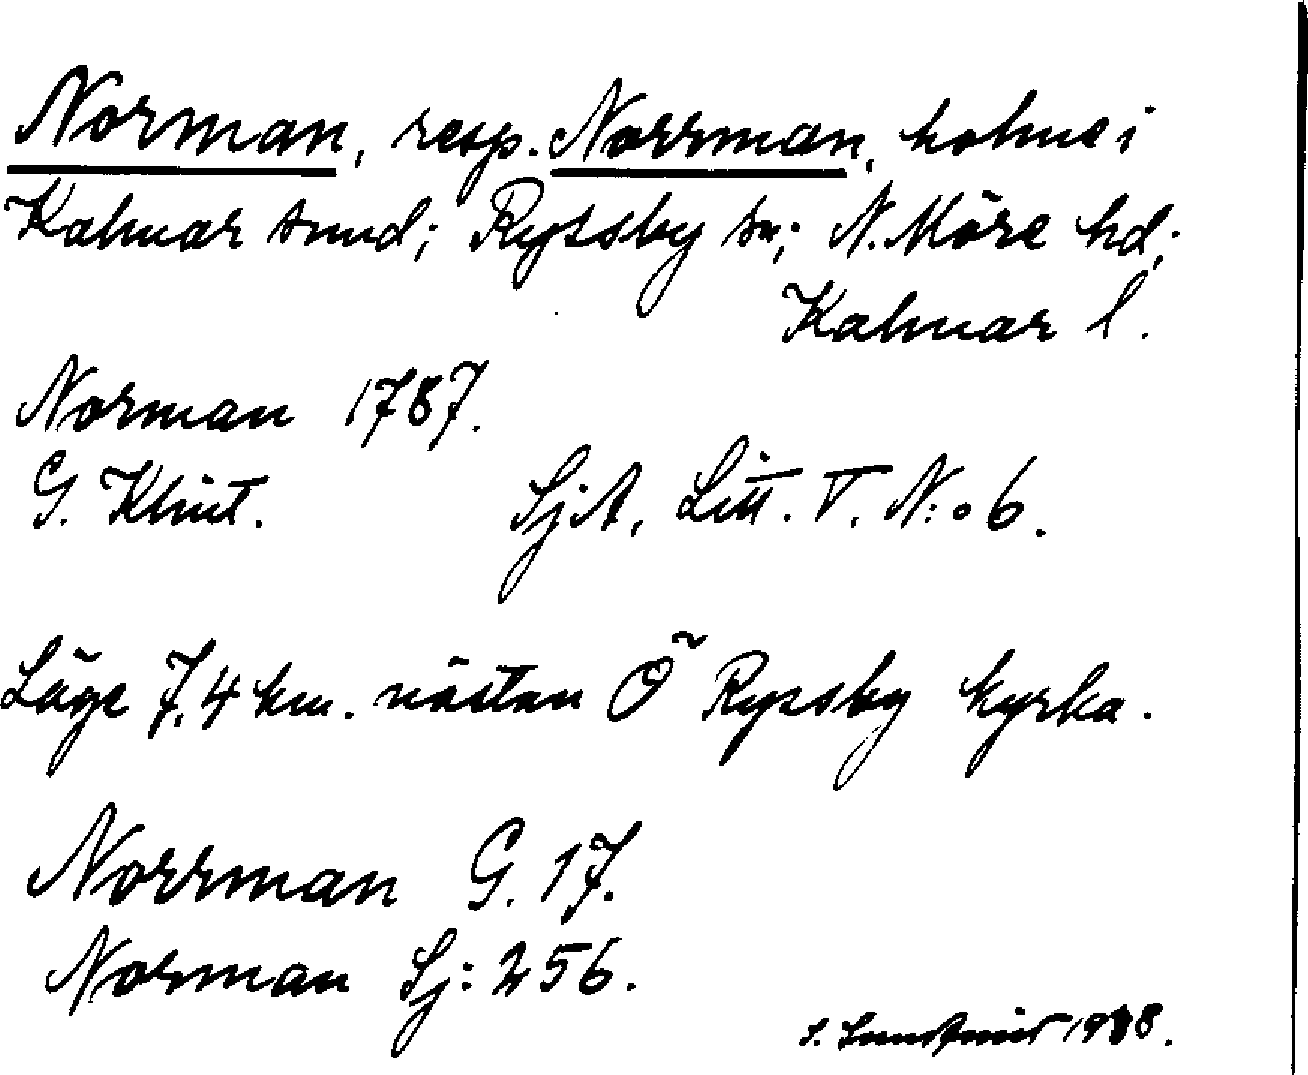 Norman, resp. Norrman, holme i
Kalmar sund; Ryssby sn; N. Möre hd;
Kalmar l.
Norman 1787.
G. Klint. SjA, Litt. V. N:o 6.
Läge 7,4 km. nästan Ö Ryssby kyrka.
Norrman G. 17.
Norman Sj: 256.
S.